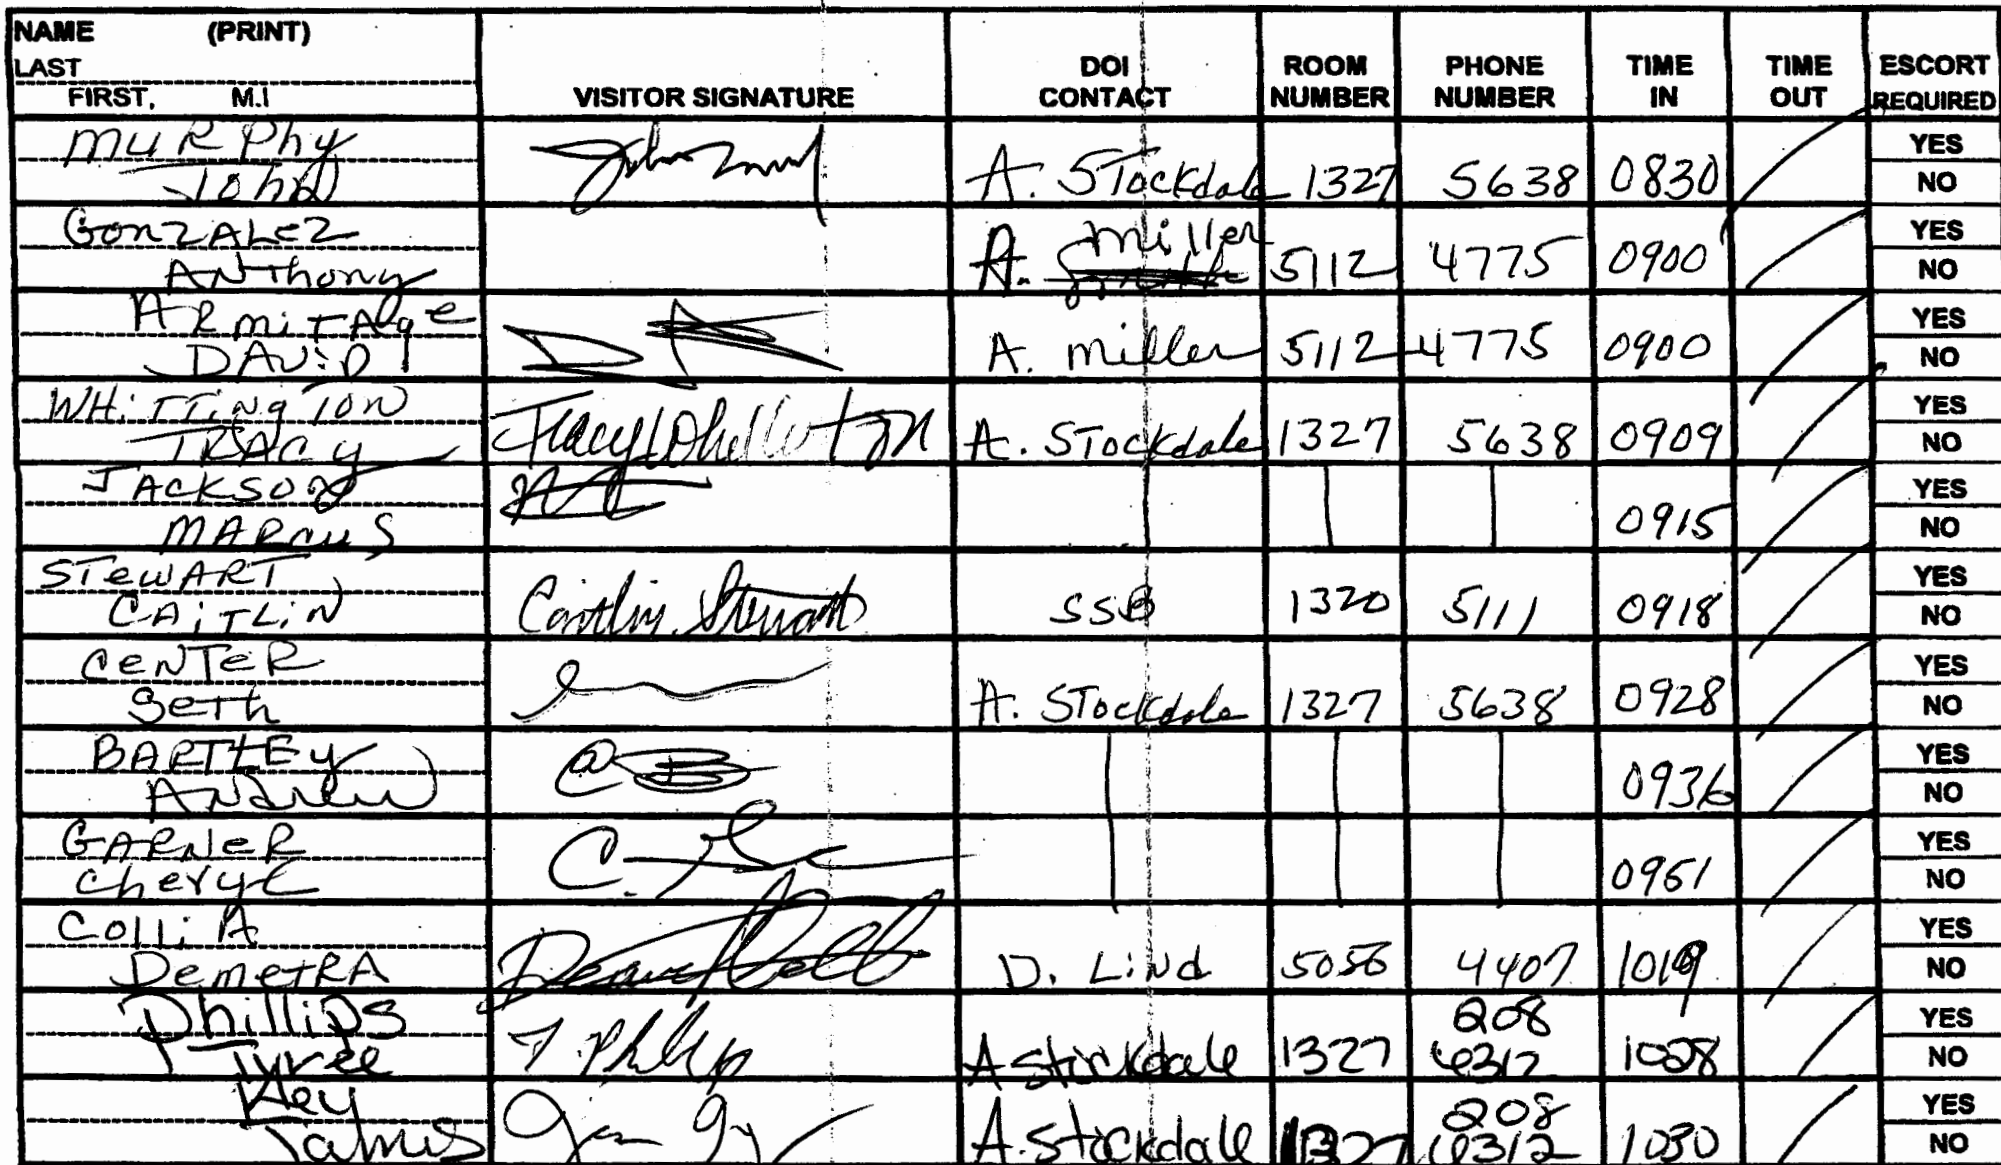 NAME (PRINT)
LAST
FIRST, M.I
VISITOR SIGNATURE
DOI CONTACT
ROOM NUMBER
PHONE NUMBER
TIME IN
TIME OUT
ESCORT REQUIRED
MURPhy
John
A. STockdale 1327 5638 0830
YES
NO
GonZALeZ
ANThony
A. miller 5112 4775 0900
YES
NO
ARmiTAge
DAViD
A. miller 5112 4775 0900
YES
NO
WHiTTingTon
TRACy
Tracy
A. STockdale 1327 5638 0909
YES
NO
JACKSON
MARcuS
0915
YES
NO
STewART
CAiTLiN
Caitlin Stewart
SSB 1320 5111 0918
YES
NO
CeNTeR
SeTh
A. STockdale 1327 5638 0928
YES
NO
BARTLEy
ANdrew
0936
YES
NO
GARNeR
Cheryl
C.
0951
YES
NO
Colli A
DemeTRA
D. LiNd 5056 4407 1019
YES
NO
Phillips
Tyree
T. Phillips
A Stockdale 1327 208 6312 1028
YES
NO
Key
James
A. Stockdale 1327 208 6312 1030
YES
NO